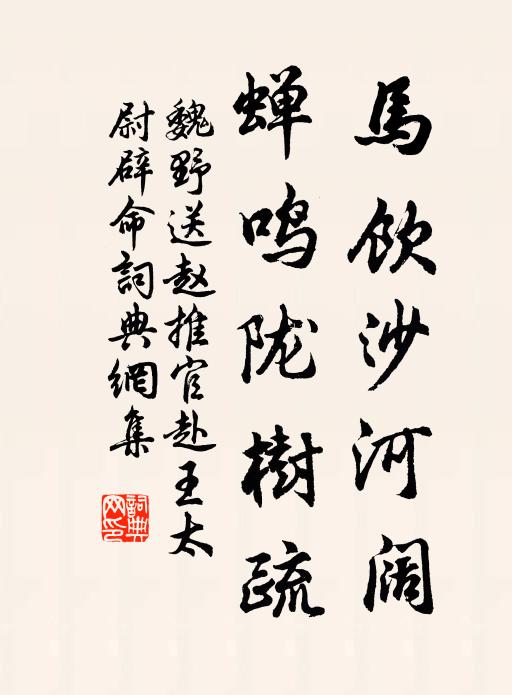 馬飲沙河阔
蝉鸣陇樹疏
魏野送赵推官赴王太
尉辟命詞典網集
詞典網印